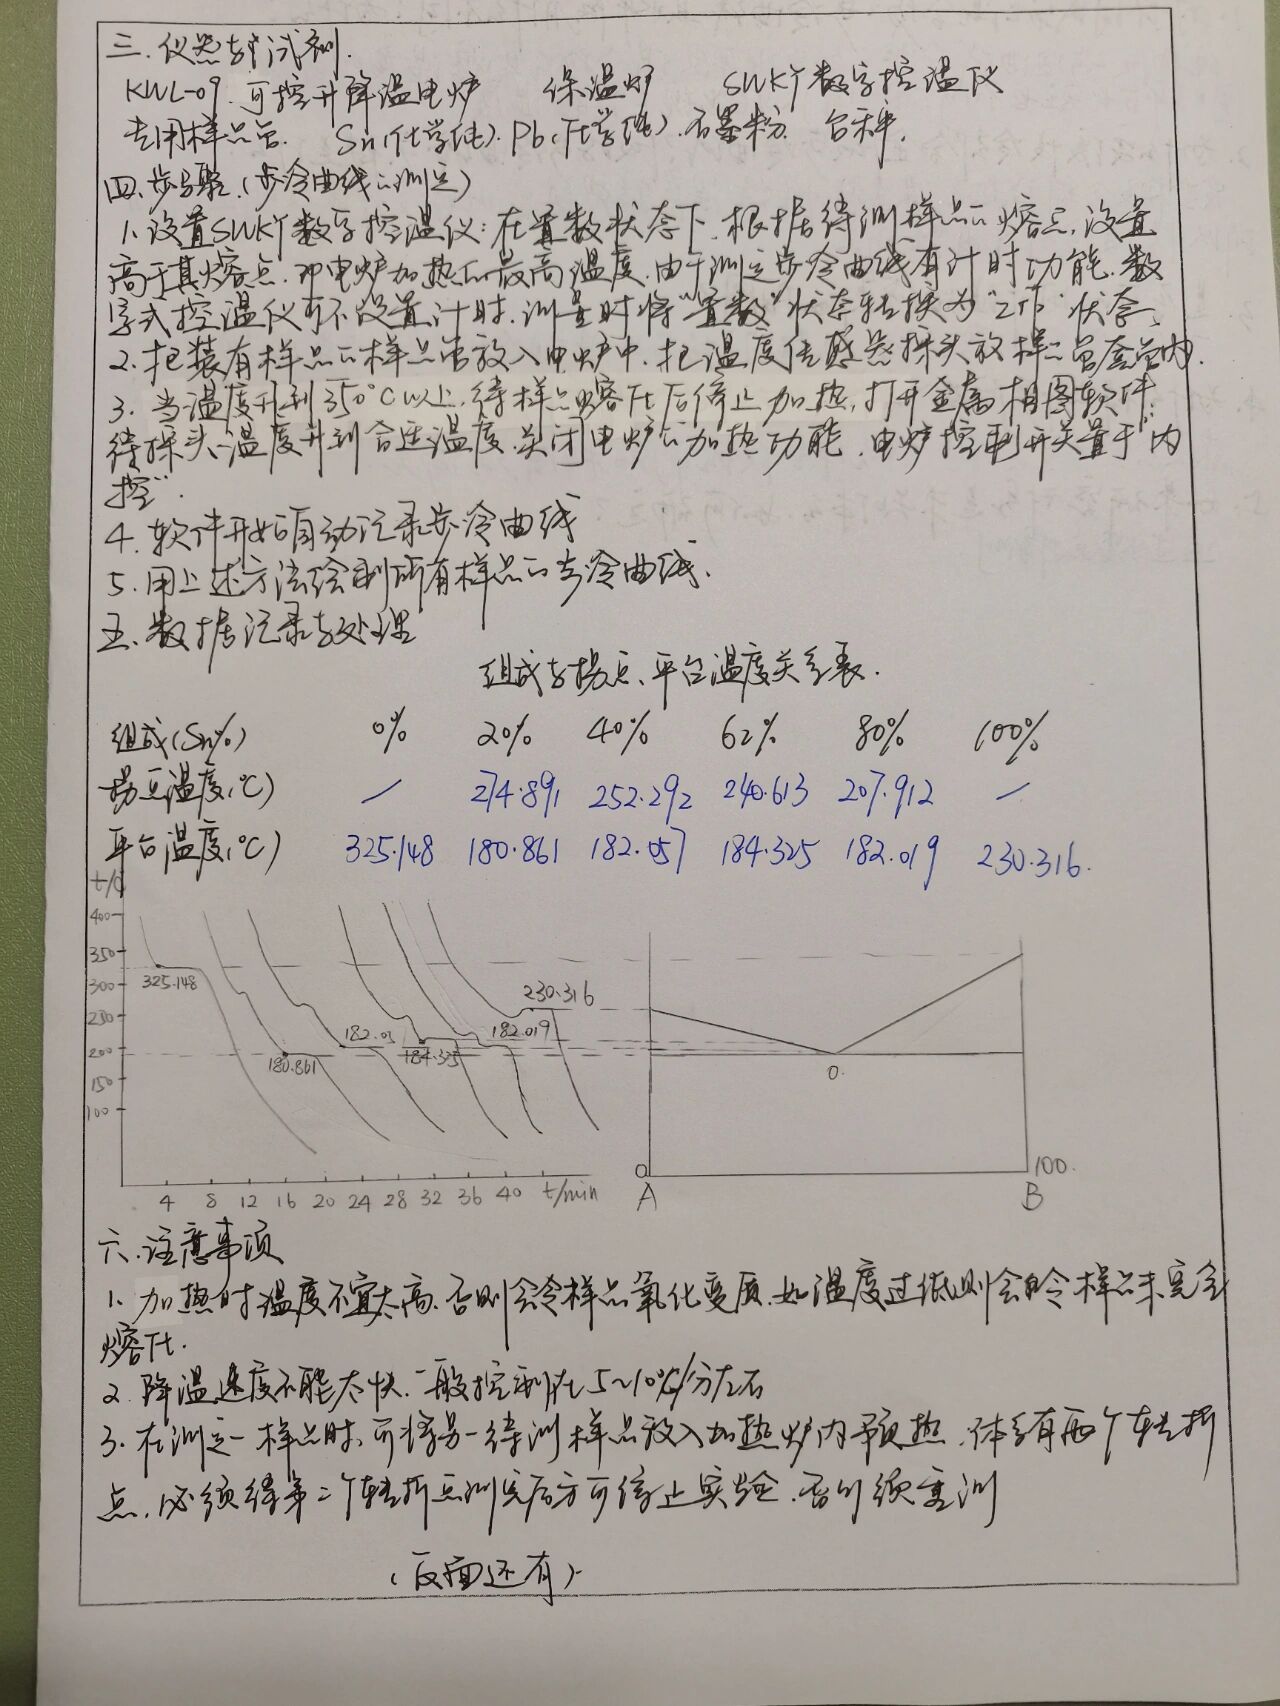 三、仪器与试剂.
KWL-09.可控升降温电炉 保温炉 SWKY数字控温仪
专用样品管. Sn(化学纯).Pb(化学纯).石墨粉. 台秤.
四、步骤.(步冷曲线的测定)
1.设置SWKY数字控温仪:在置数状态下,根据待测样品的熔点,设置
高于其熔点.即电炉加热的最高温度.由于测定步冷曲线有计时功能.数
字式控温仪可不设置计时.测量时将“置数”状态转换为“工作”状态.
2.把装有样品的样品管放入电炉中.把温度传感器探头放样品管套管内.
3.当温度升到350°C以上,待样品熔化后停止加热,打开金属相图软件.
待探头温度升到合适温度.关闭电炉的加热功能.电炉控制开关置于“内
控”.
4.软件开始自动记录步冷曲线
5.用上述方法绘制所有样品的步冷曲线.
五、数据记录与处理
组成与拐点、平台温度关系表.
组成(Sn%) 0% 20% 40% 62% 80% 100%
拐点温度(°C) / 274.891 252.292 240.613 207.912 —
平台温度(°C) 325.148 180.861 182.057 184.325 182.019 230.316.
t/C
400
350
300
250
200
150
100
325.148
180.861
182.05
184.325
182.019
230.316
4 8 12 16 20 24 28 32 36 40 t/min
0
A
0.
100.
B
六.注意事项
1.加热时温度不宜太高.否则会令样品氧化变质.如温度过低则会令样品未完全
熔化.
2.降温速度不能太快.一般控制在5~10℃/分左右
3.在测定一样品时,可将另一待测样品放入加热炉内预热.体系有两个转折
点.必须待第二个转折点测完后方可停止实验.否则须重测
(反面还有)